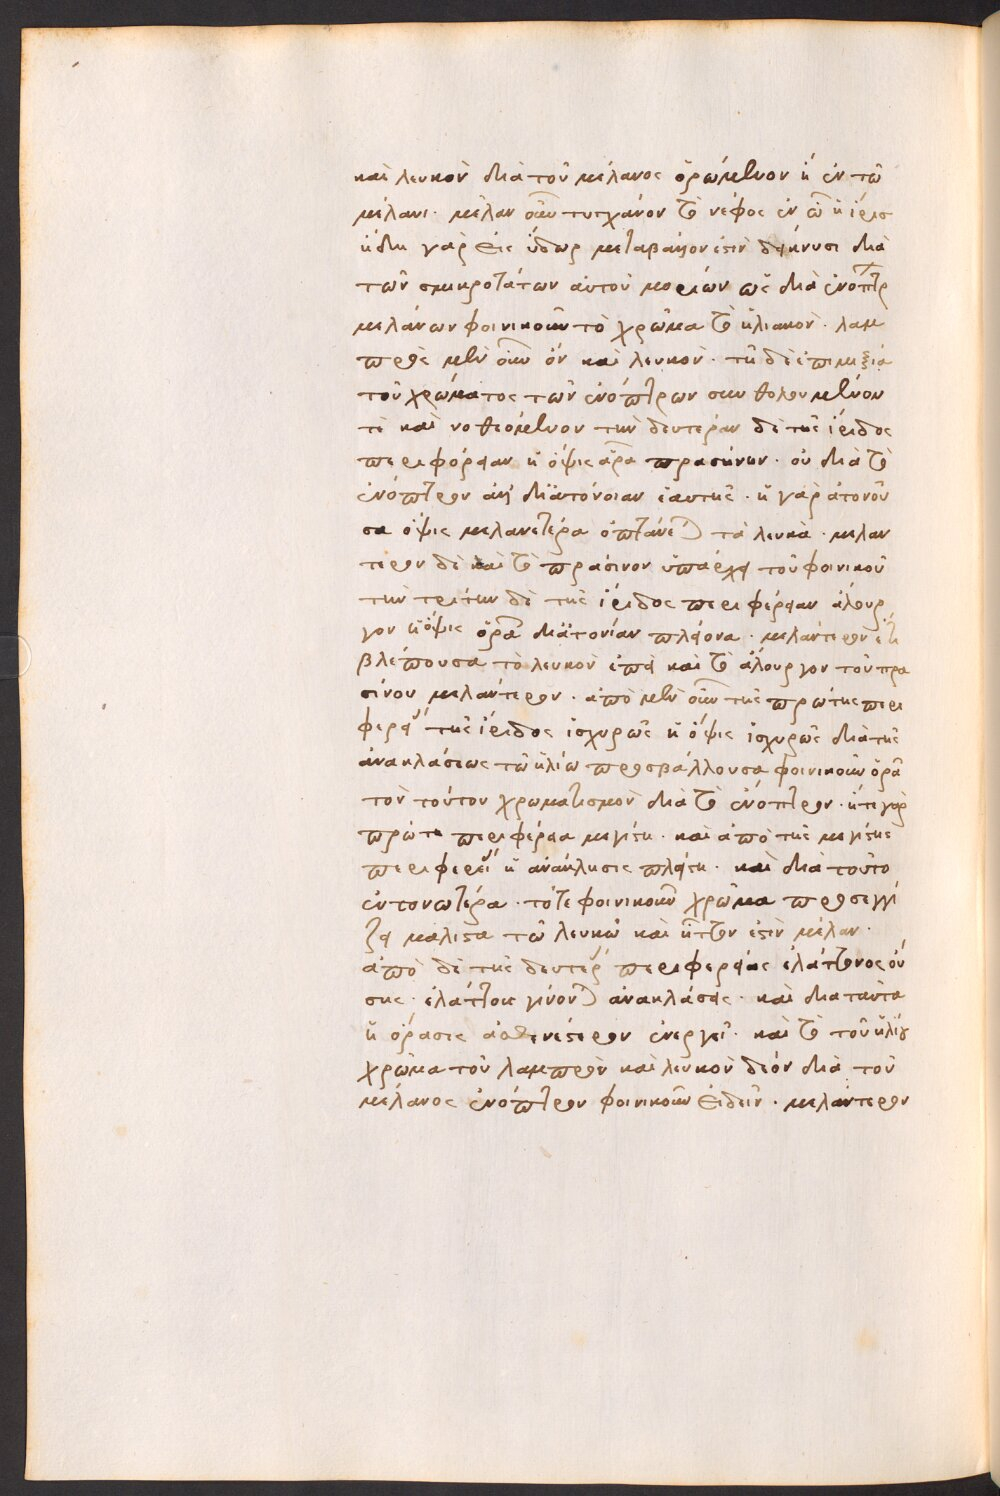 καὶ λευκὸν διὰ τοῦ μέλανος ὁρώμενον ἢ ἐν τῶ
μέλανι. μέλαν οὖν τυγχάνον τὸ νέφος ἐν ὧ ἡ ἶρις
ἤδη γὰρ εἰς ὕδωρ μεταβάλλον ἐστὶν δείκνυσι διὰ
τῶν σμικροτάτων αὐτοῦ μορίων ὡς διὰ ἐνόπτρ
μελάνων φοινικοῦν τὸ χρῶμα τὸ ἡλιακὸν. λαμ
πρὸς μὲν οὖν ὂν καὶ λευκὸν. τῆ δὲ ἐπιμιξία
τοῦ χρώματος τῶν ἐνόπτρων συνθολούμενον
τὲ καὶ νοθεόμενον τὴν δευτέραν δὲ τῆς ἴριδος
περιφόρειαν ἡ ὄψις ὁρᾶ πρασίνην. οὐ διὰ τὸ
ἐνόπτρον ἀλλὰ διὰ τόνοιαν ἑαυτῆς. ἡ γὰρ ἀτονοῦ
σα ὄψις μελανετέρα ὀπτάνεται τὰ λευκὰ. μελαν
τερον δὲ καὶ τὸ πράσινον ὑπάρχει τοῦ φοινικοῦ
τὴν τρίτην δὲ τῆς ἴριδος περιφέρειαν ἁλουρ
γον ἡ ὄψις ὁρᾶ διὰ τονίαν πλείονα. μελάντερον ἔτι
βλέπουσα τὸ λευκὸν ἐπεὶ καὶ τὸ ἁλουργον τοῦ πρα
σίνου μελάντερον. ἀπὸ μὲν οὖν τῆς πρώτης περι
φερείας τῆς ἴριδος ἰσχυρῶς ἡ ὄψις ἰσχυρῶς διὰ τῆς
ἀνακλάσεως τῶ ἡλίω προσβάλλουσα φοινικοῦν ὁρᾶ
τὸν τούτου χρωματισμὸν διὰ τὸ ἐνόπτρον. ἥτε γὰρ
πρώτη περιφέρεια μεγίστη. καὶ ἀπὸ τῆς μεγίστης
περιφερείας ἡ ἀνάκλησις πλείστη. καὶ διὰ τοῦτο
ἐντονωτέρα. τότε φοινικοῦν χρῶμα προσεγγί
ζει μάλιστα τῶ λευκῶ καὶ ἧττον ἐστὶν μέλαν.
ἀπὸ δὲ τῆς δευτέρας περιφερείας ἐλάττονος οὔ
σης. ἐλάττους γίνονται ἀνακλάσεις. καὶ δια ταῦτα
ἡ ὅρασις ἀσθενέστερον ἐνεργεῖ. καὶ τὸ τοῦ ἡλίου
χρῶμα τοῦ λαμπρὸν καὶ λευκὸν δεόν διὰ τοῦ
μέλανος ἐνόπτρου φοινικοῦν εἰδεῖν. μελάντερον